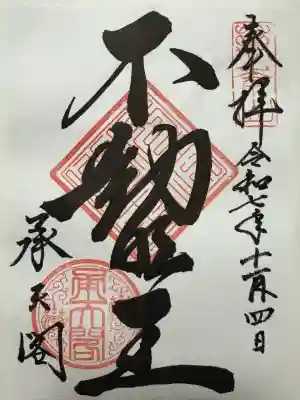 奉拝
令和七年十一月四日
不動明王
承天閣